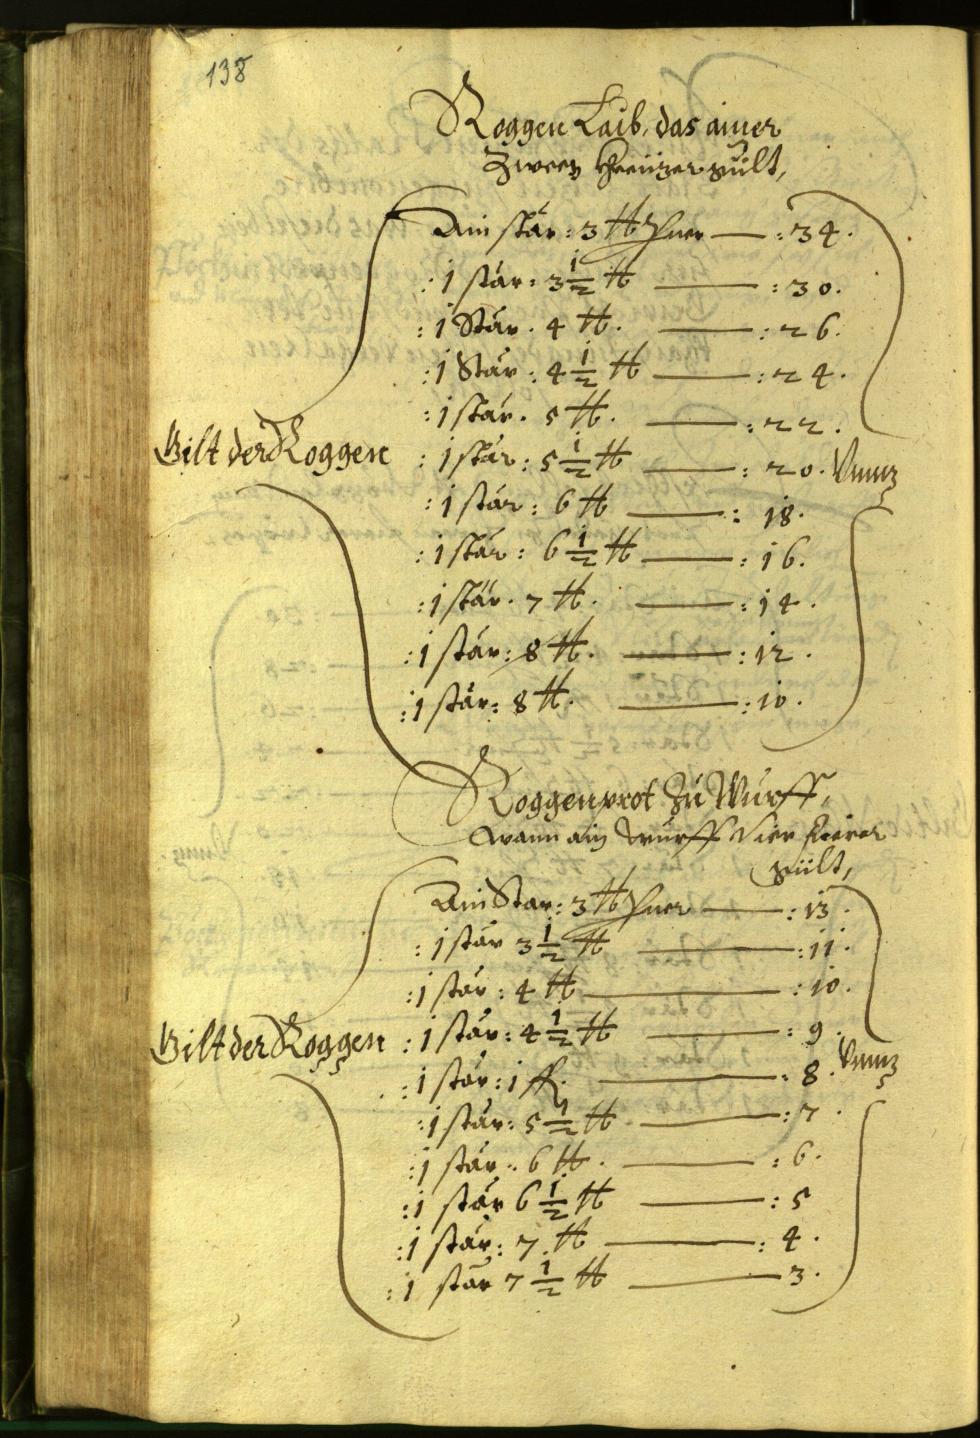 138
Roggen Laib, das ainer
Zween Kreüzer gült,
Ain stär: 3 ℔ Pner — : 34.
: 1 stär: 3 1/2 ℔ — : 30.
: 1 Stär. 4 ℔. — : 26.
: 1 Stär: 4 1/2 ℔ — : 24.
: 1 stär. 5 ℔. — : 22.
Gilt der Roggen : 1 stär: 5 1/2 ℔ — : 20. Vnnz
: 1 stär: 6 ℔ — : 18.
: 1 stär: 6 1/2 ℔ — : 16.
: 1 stär. 7 ℔. — : 14.
: 1 stär: 8 ℔. — : 12.
: 1 stär: 8 ℔. — : 10.
Roggenprot Zu Wurff,
Wann ain Wurff Vier
gült,
Ain Star: 3 ℔ Pner — : 13.
: 1 stär 3 1/2 ℔ — : 11.
: 1 stär: 4 ℔ — : 10.
Gilt der Roggen : 1 stär: 4 1/2 ℔ — : 9. Vnnz
: 1 stär: 1 ff. — : 8.
: 1 stär: 5 1/2 ℔ — : 7.
: 1 stär. 6 ℔. — : 6.
: 1 stär 6 1/2 ℔ — : 5
: 1 stär: 7 ℔ — : 4.
: 1 stär 7 1/2 ℔ — 3.